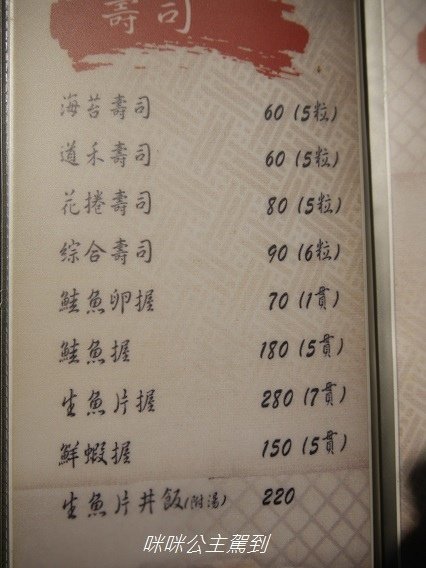 壽司
海苔壽司 60 (5粒)
道禾壽司 60 (5粒)
花捲壽司 80 (5粒)
綜合壽司 90 (6粒)
鮭魚卵握 70 (1貫)
鮭魚握 180 (5貫)
生魚片握 280 (7貫)
鮮蝦握 150 (5貫)
生魚片丼飯(附湯) 220
咪咪公主駕到